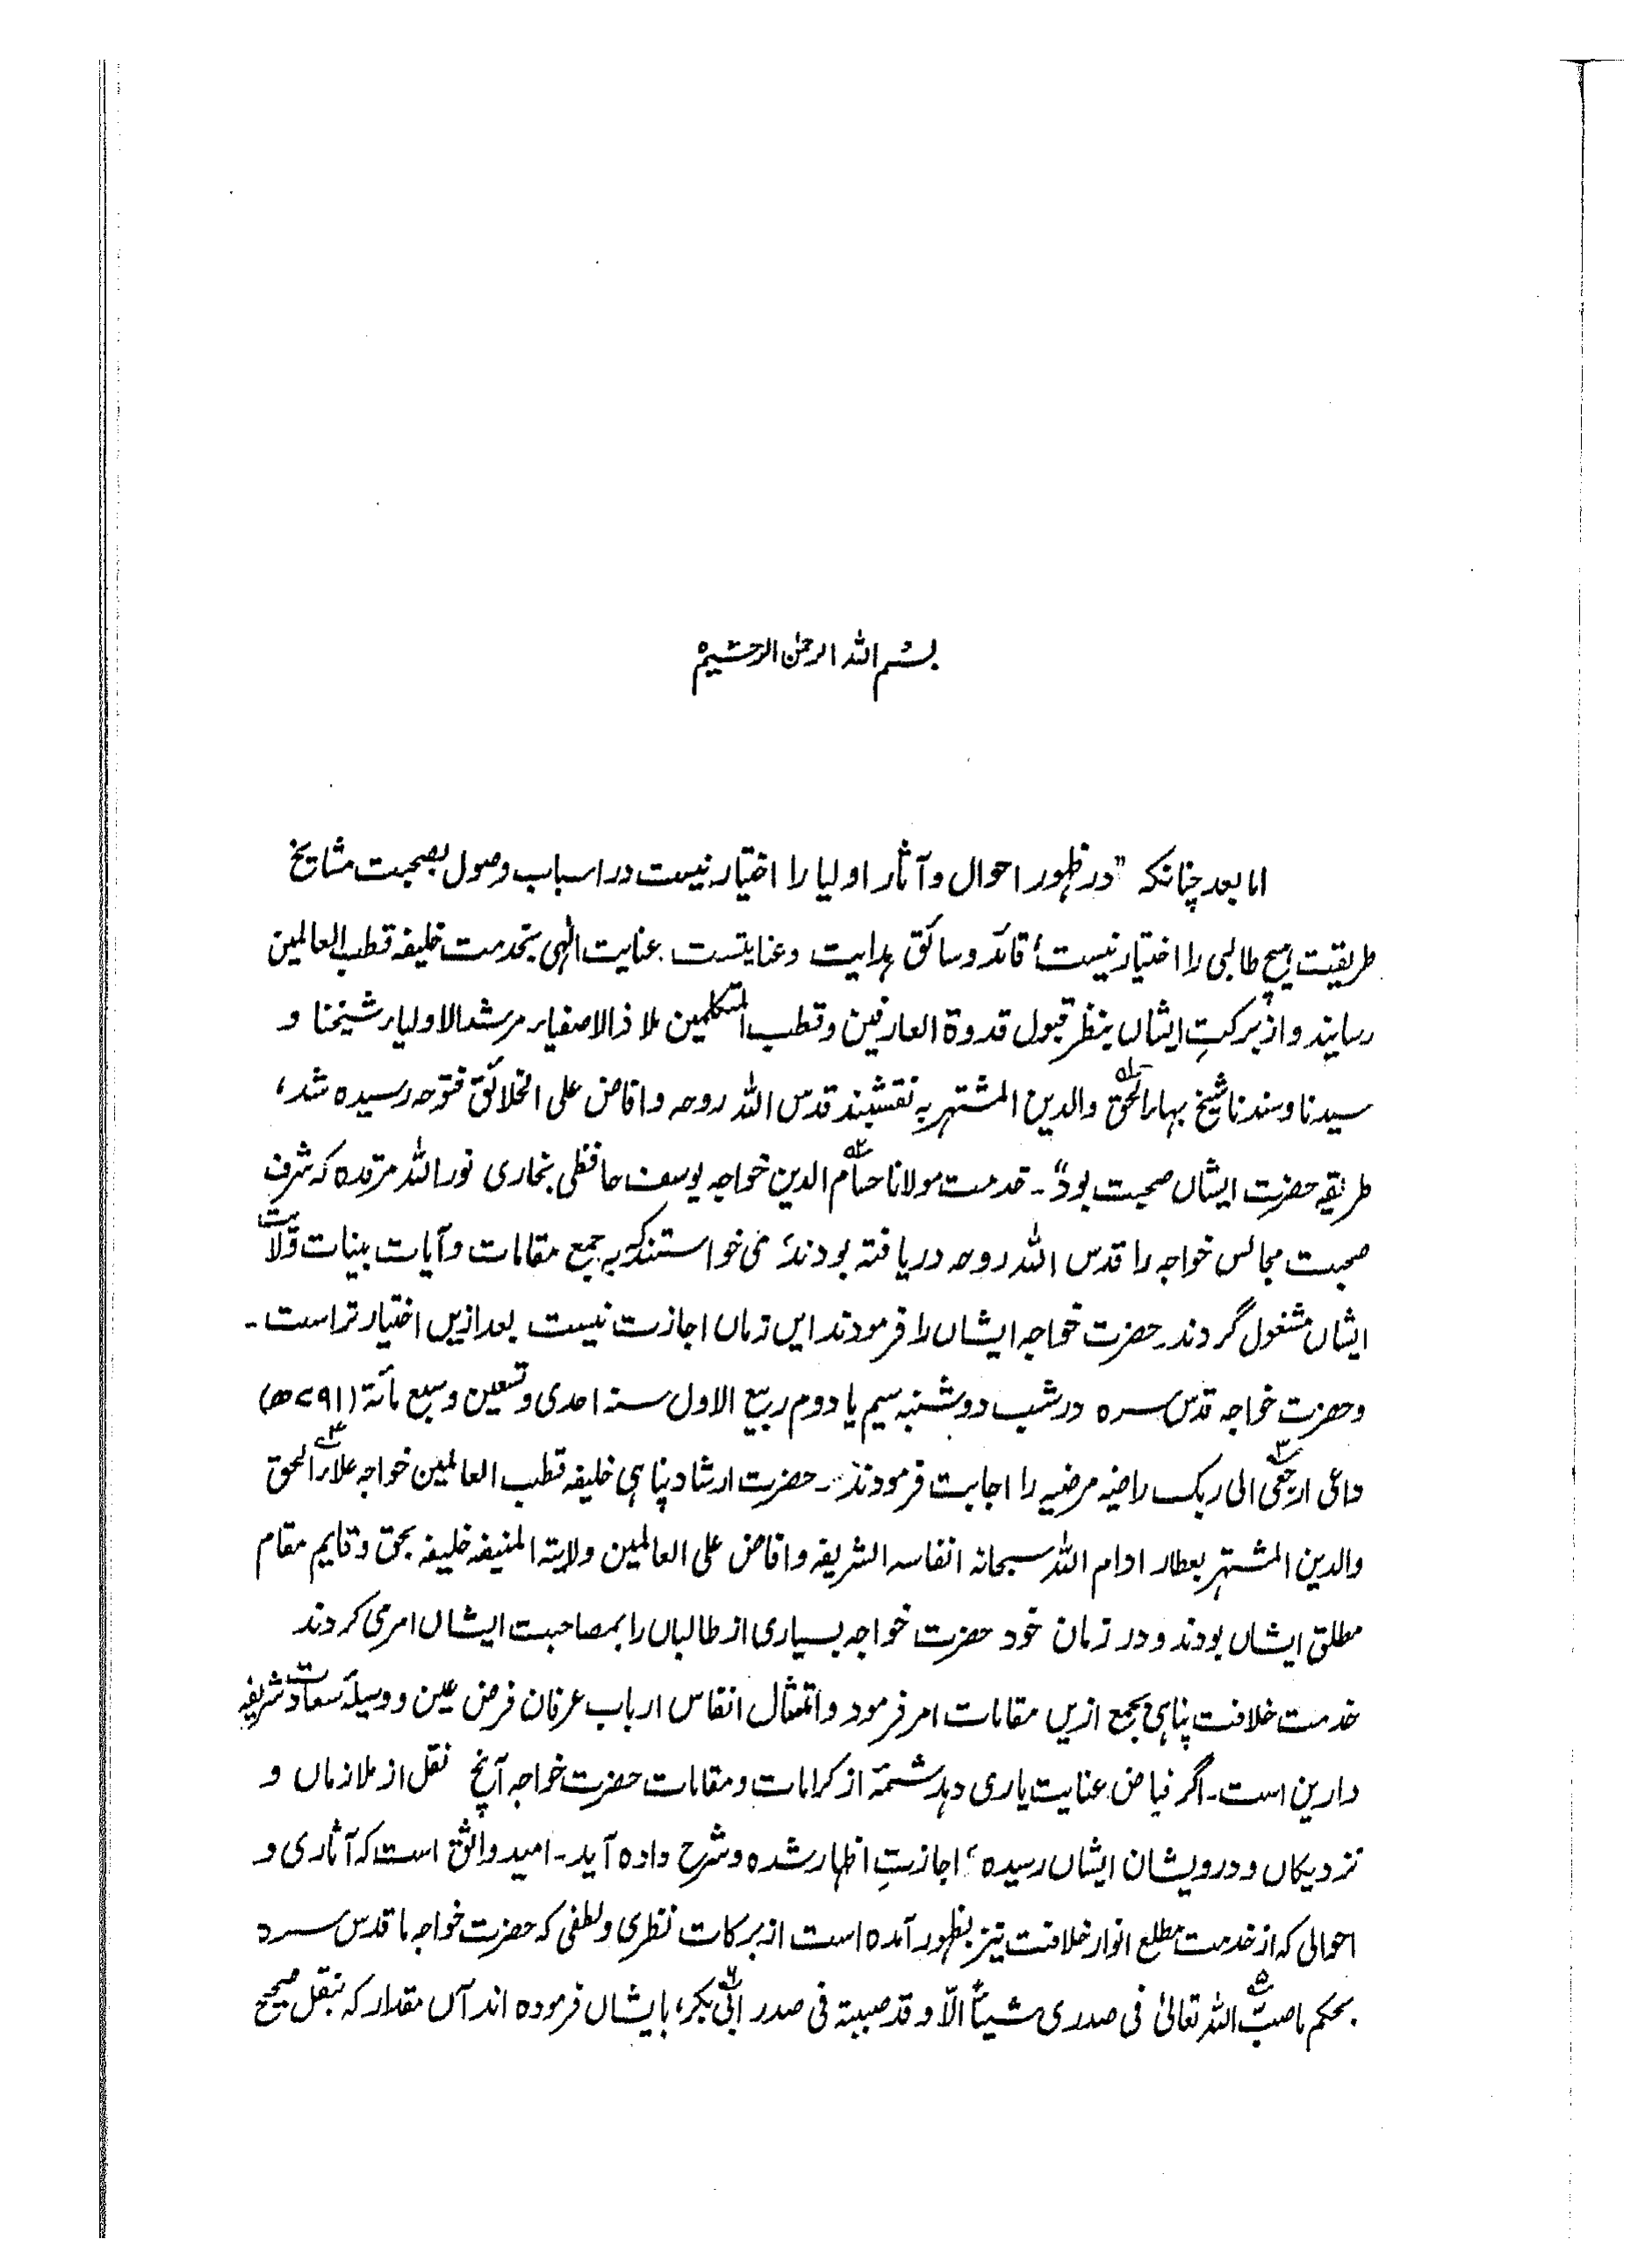 بسم الله الرحمن الرحیم
اما بعد چنانکہ "در ظہور احوال و آثار اولیا را اختیار نیست در اسباب وصول بصحبت مشایخ
طریقت ہیچ طالبی را اختیار نیست؛ قائد و سائق ہدایت و عنایتست۔ عنایت الٰہی بخدمت خلیفہ قطب العالمین
رسانید و از برکتِ ایشاں بنظر قبول قدوة العارفین و قطب المتکلمین ملاذ الاصفیاء مرشد الاولیاء شیخنا و
سیدنا و سندنا شیخ بہاء الحق۱ والدین المشتہر بہ نقشبند قدس اللہ روحہ و افاض علی الخلائق فتوحہ رسیدہ شد،
طریقہ حضرت ایشاں صحبت بود"۔ خدمت مولانا حسام۲ الدین خواجہ یوسف حافظی بخاری نور اللہ مرقدہ کہ شرف
صحبت مجالس خواجہ را قدس اللہ روحہ دریافتہ بودند، می خواستند کہ بہ جمع مقامات و آیات بینات ولایت
ایشاں مشغول گردند۔ حضرت خواجہ ایشاں را فرمودند ایں زماں اجازت نیست بعد ازیں اختیار تراست۔
و حضرت خواجہ قدس سرہ در شب دوشنبہ سیم یا دوم ربیع الاول سنہ احدی و تسعین و سبع مأئة (۷۹۱ھ)
داعی ارجعی۳ الی ربک راضیہ مرضیہ را اجابت فرمودند۔ حضرت ارشاد پناہی خلیفہ قطب العالمین خواجہ علاء۴ الحق
والدین المشتہر بعطار ادام اللہ سبحانہ انفاسہ الشریفہ و افاض علی العالمین ولایتہ المنیفہ خلیفہ بحق و قایم مقام
مطلق ایشاں بودند و در زمان خود حضرت خواجہ بسیاری از طالباں را بمصاحبت ایشاں امر می کردند
خدمت خلافت پناہی بجمع ازیں مقامات امر فرمود و امتثال انفاس ارباب عرفان فرض عین و وسیلۂ سعادت شریفہ
دارین است۔ اگر فیاض عنایت یاری دہد شمۂ از کرامات و مقامات حضرت خواجہ آنچ نقل از ملازماں و
نزدیکاں و درویشان ایشاں رسیدہ؛ اجازتِ اظہار شدہ و شرح دادہ آید۔ امید واثق است کہ آثاری و
احوالی کہ از خدمت مطلع انوار خلافت نیز بظہور آمدہ است از برکات نظری و لطفی کہ حضرت خواجہ ما قدس سرہ
بحکم ما صبّ۵ اللہ تعالیٰ فی صدری شیئاً الّا و قد صببتہ فی صدر ابی۶ بکر، با ایشاں فرمودہ اند آں مقدار کہ بنقل صحیح